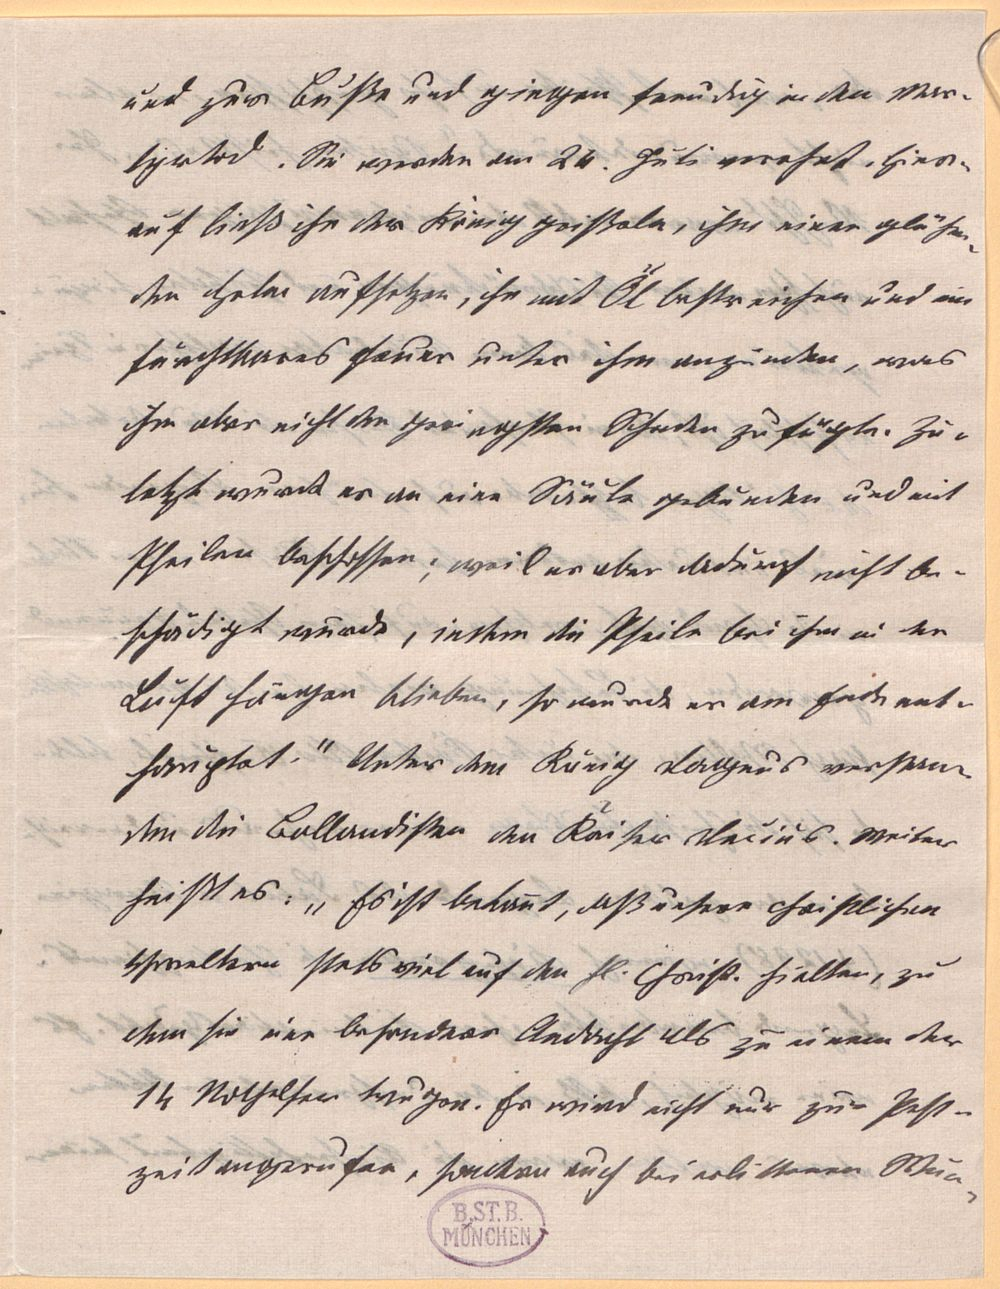 und zur Buße und giengen freudig in den Mar-
tyrtod. Sie werden am 24. Juli verehrt. Hier-
auf ließ ihn der König geißeln, ihm einen glühen-
den Helm aufsetzen, ihn mit Öl bestreichen und ein
furchtbares Feuer unter ihm anzünden, was
ihm aber nicht den geringsten Schaden zufügte. Zu-
letzt wurde er an eine Säule gebunden und mit
Pfeilen beschossen; weil er aber dadurch nicht be-
schädigt wurde, indem die Pfeile bei ihm in der
Luft hängen blieben, so wurde er am Ende ent-
hauptet." Unter dem König Dagnus verstan-
den die Bollandisten den Kaiser Decius. Weiter
heißt es: „Es ist bekannt, daß unsere christlichen
Voreltern stets viel auf den hl. Christ. hielten, zu
dem sie eine besondere Andacht als zu einem der
14 Nothelfer trugen. Er wird nicht nur zur Pest-
zeit angerufen, sondern auch bei erlittenen Wun-
B.ST.B.
MÜNCHEN